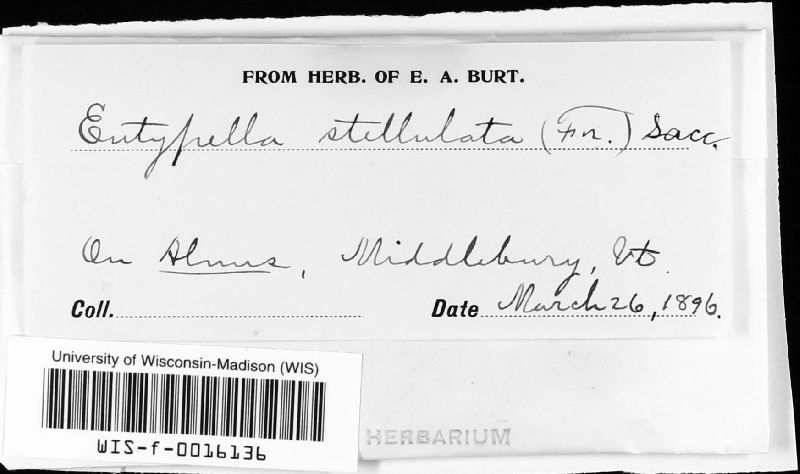 FROM HERB. OF E. A. BURT.
Eutypella stellulata (Fr.) Sacc.
On Alnus, Middlebury, Vt.
Coll. Date March 26, 1896.
University of Wisconsin-Madison (WIS)
WIS-f-0016136
HERBARIUM